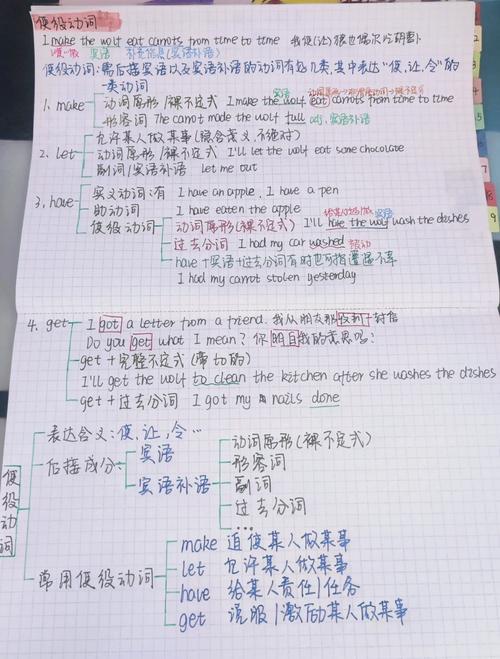 使役动词
I make the wolf eat carrots from time to time 我使(让)狼也偶尔吃胡萝卜
使役 宾语 补充信息(宾语补语)
使役动词:需后接宾语以及宾语补语的动词有好几类,其中表达"使,让,令"的
一类动词
宾语
1. make 动词原形/裸不定式 I make the wolf eat carrots from time to time
形容词 The carrot made the wolf full adj, 宾语补语
允许某人做某事(综合含义,不绝对)
2. let 动词原形/裸不定式 I'll let the wolf eat some chocolate
副词/宾语补语 let me out
3. have 实义动词:有 I have an apple, I have a pen
助动词 I have eaten the apple
给某人 宾语
使役动词 动词原形(裸不定式) I'll have the wolf wash the dishes
过去分词 I had my car washed 被动
have+宾语+过去分词有时也可指遭遇不幸
I had my carrot stolen yesterday
4. get I got a letter from a friend. 我从朋友那收到一封信
Do you get what I mean? 你明白我的意思吗?
get+完整不定式(带to的)
I'll get the wolf to clean the kitchen after she washes the dishes
get+过去分词 I got my nails done
使役动词
表达含义:使,让,令…
后接成分 宾语
宾语补语 动词原形(裸不定式)
形容词
副词
过去分词
...
常用使役动词 make 迫使某人做某事
let 允许某人做某事
have 给某人责任/任务
get 说服/激励某人做某事